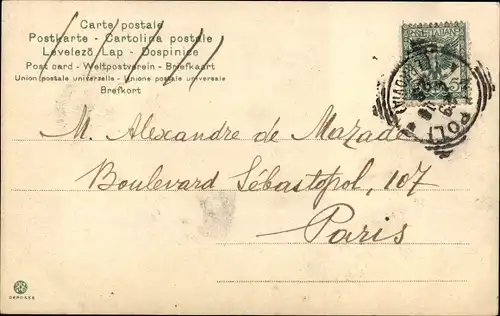 Carte postale
Postkarte - Cartolina postale
Levelező Lap - Dospinice
Post card - Weltpostverein - Briefkaart
Union postale universelle - Unione postale universale
Brefkort
POSTE ITALIANE
NAPOLI
FERROVIA
M. Alexandre de Mazade
Boulevard Sébastopol, 107
Paris
DEPOSES